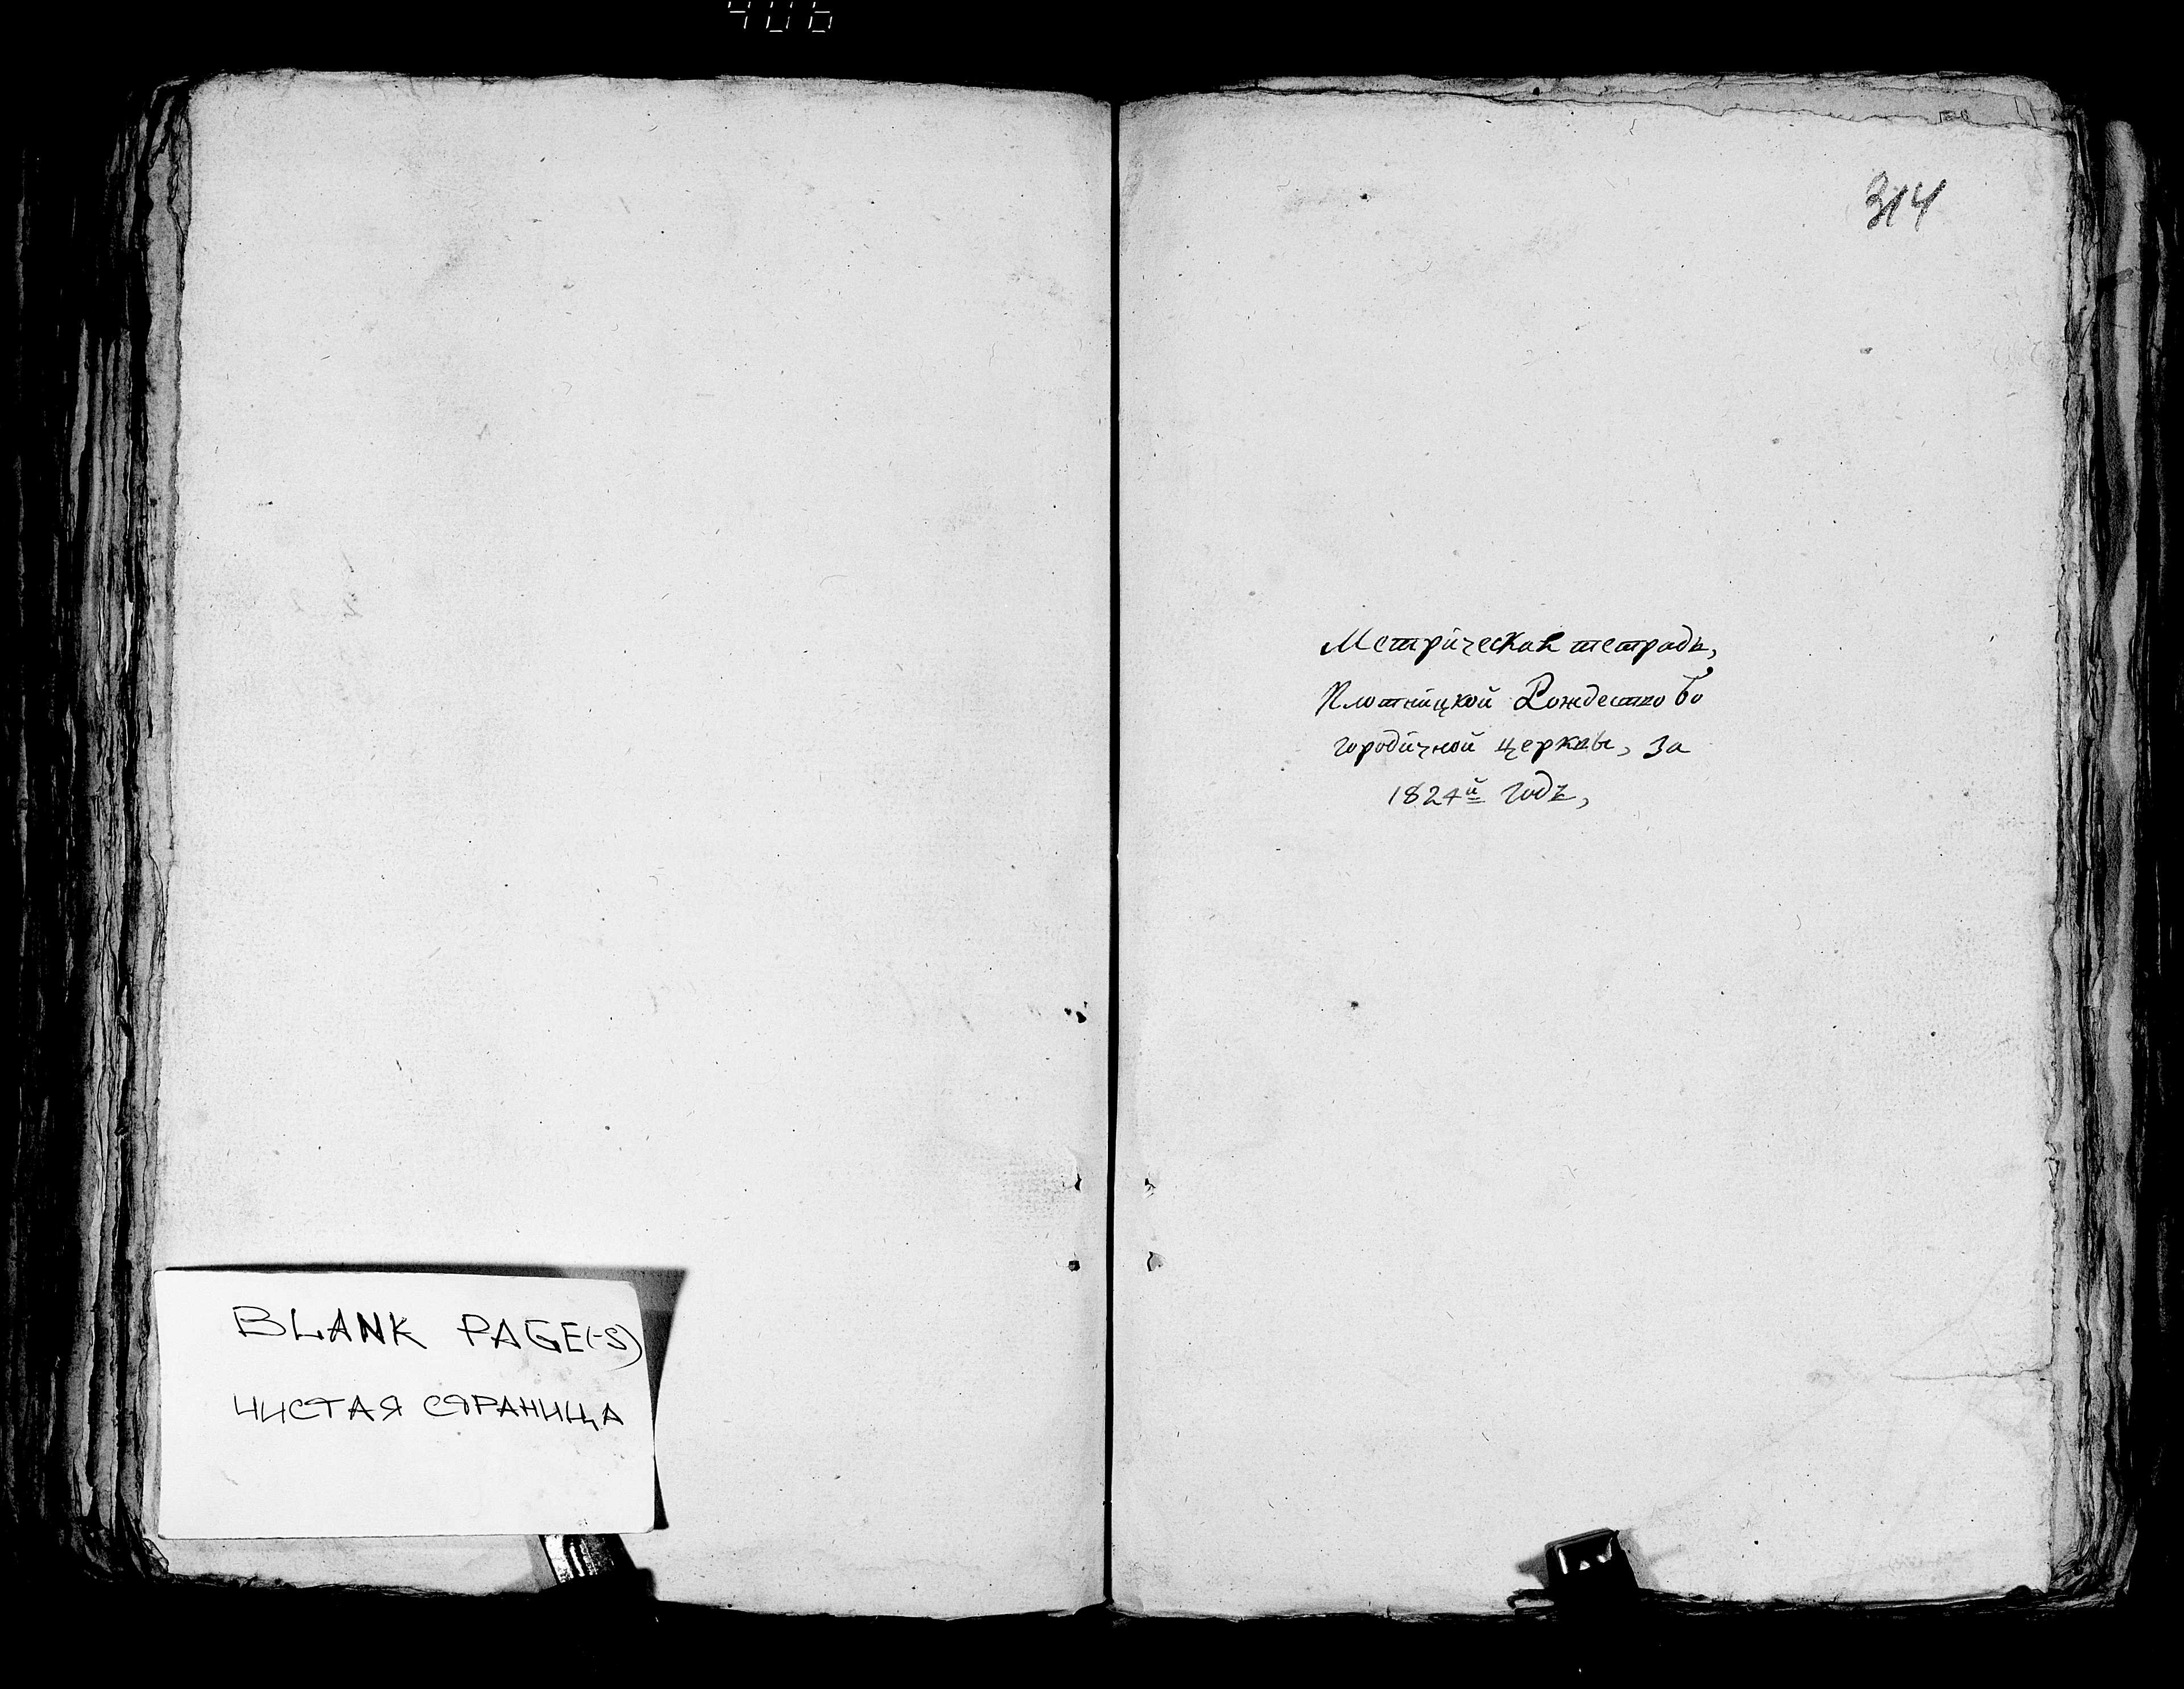 406
BLANK PAGE(-S)
ЧИСТАЯ СТРАНИЦА
314
Метрическая тетрадь,
Плотницкой Рождество Бо
городичной церквы, за
1824й годъ,